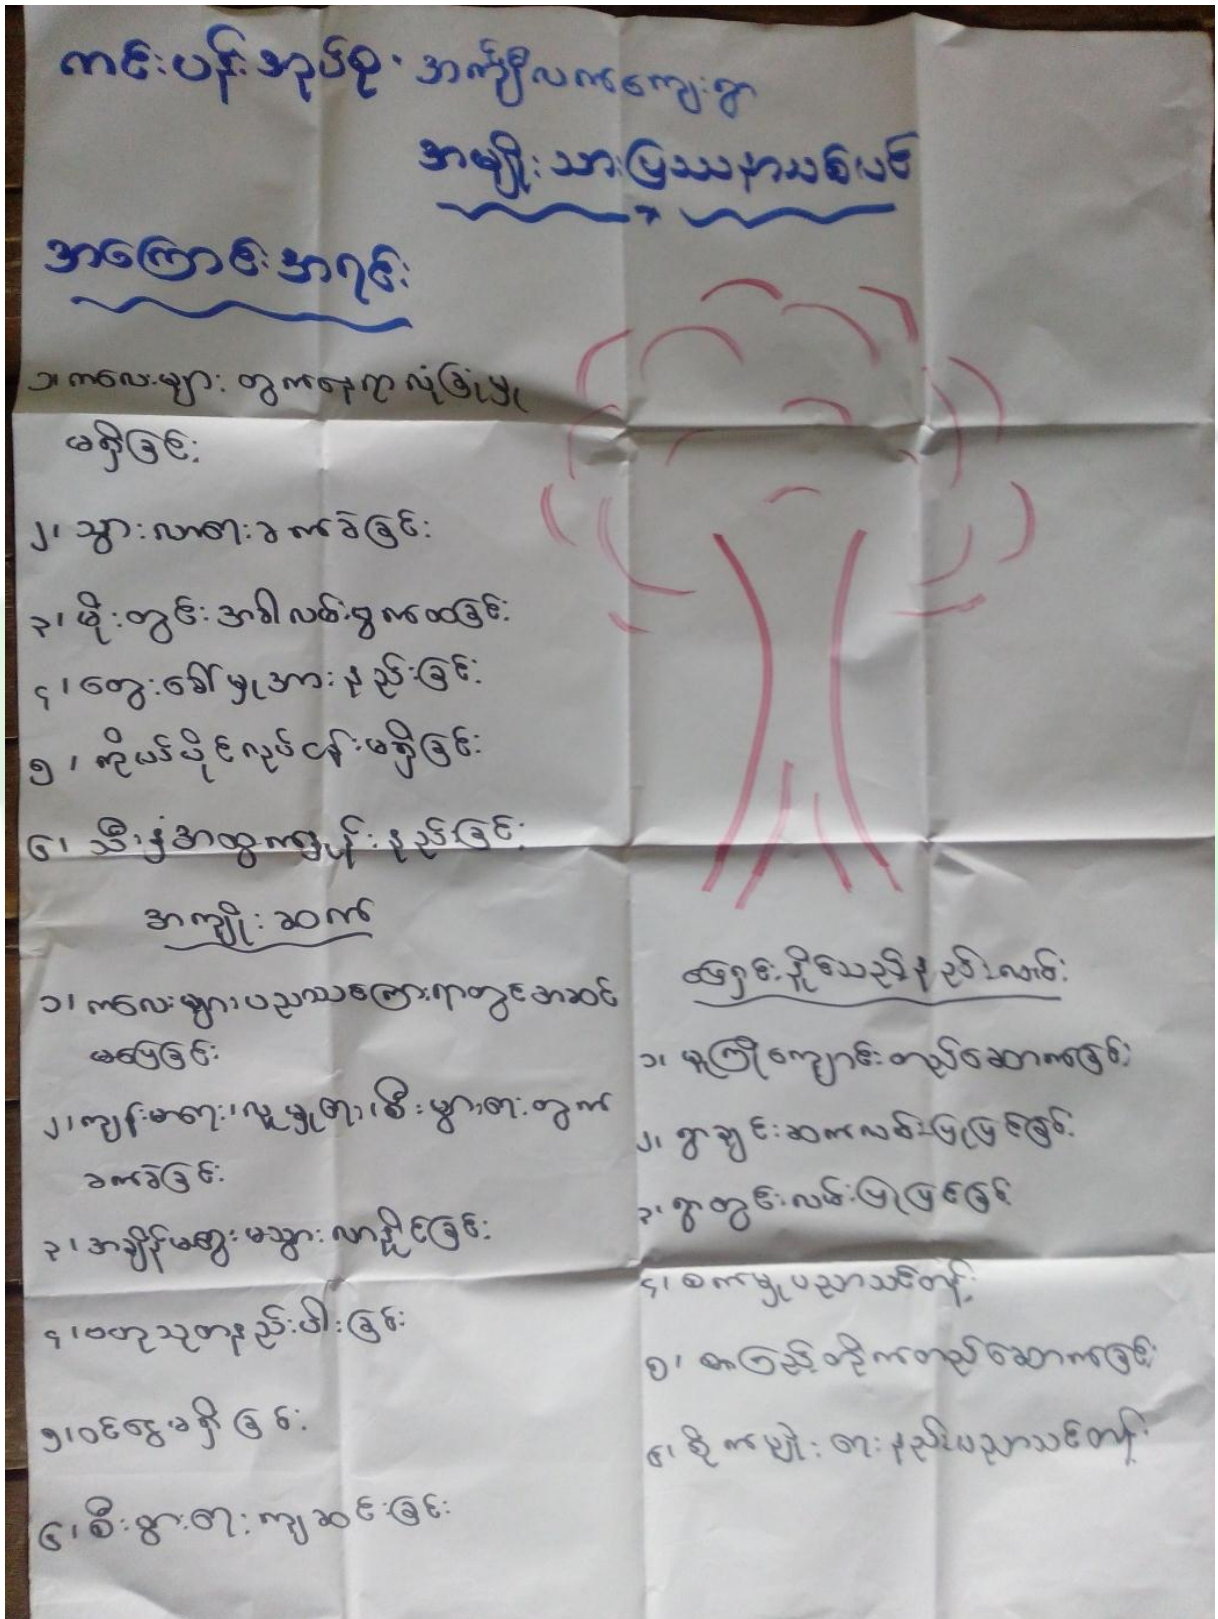 ကင်းပွန်းအုပ်စု၊ အင်္ကျီလက်ကျေးရွာ
အမျိုးသားပြဿနာသစ်ပင်
အကြောင်းအရင်း
၁၊ ကလေးများ တွက်နေရာလုံခြုံမှု
မရှိခြင်း
၂၊ သွားလာရေးခက်ခဲခြင်း
၃၊ မိုးတွင်းအခါလမ်းပျက်ထခြင်း
၄၊ တွေးခေါ်မှုအားနည်းခြင်း
၅၊ ကိုယ်ပိုင်လုပ်ငန်းမရှိခြင်း
၆၊ သီးနှံအထွက်နှုန်းနည်းခြင်း
အကျိုးဆက်
၁၊ ကလေးများပညာသင်ကြားရာတွင်အဆင်
မပြေခြင်း
၂၊ ကျန်းမာရေး၊ လူမှုရေး၊ စီးပွားရေးတွက်
ခက်ခဲခြင်း
၃၊ အချိန်မတွေးမသွားလာနိုင်ခြင်း
၄၊ ဗဟုသုတနည်းပါးခြင်း
၅၊ ဝင်ငွေမရှိခြင်း
၆၊ စီးပွားရေးကျဆင်းခြင်း
ဖြေရှင်းနိုင်သည့်နည်းလမ်း
၁၊ မူကြိုကျောင်းတည်ဆောက်ခြင်း
၂၊ ရွာချင်းဆက်လမ်းပြုပြင်ခြင်း
၃၊ ရွာတွင်းလမ်းပြုပြင်ခြင်း
၄၊ စက်မှုပညာသင်တန်း
၅၊ စာကြည့်တိုက်တည်ဆောက်ခြင်း
၆၊ စိုက်ပျိုးရေးနည်းပညာသင်တန်း